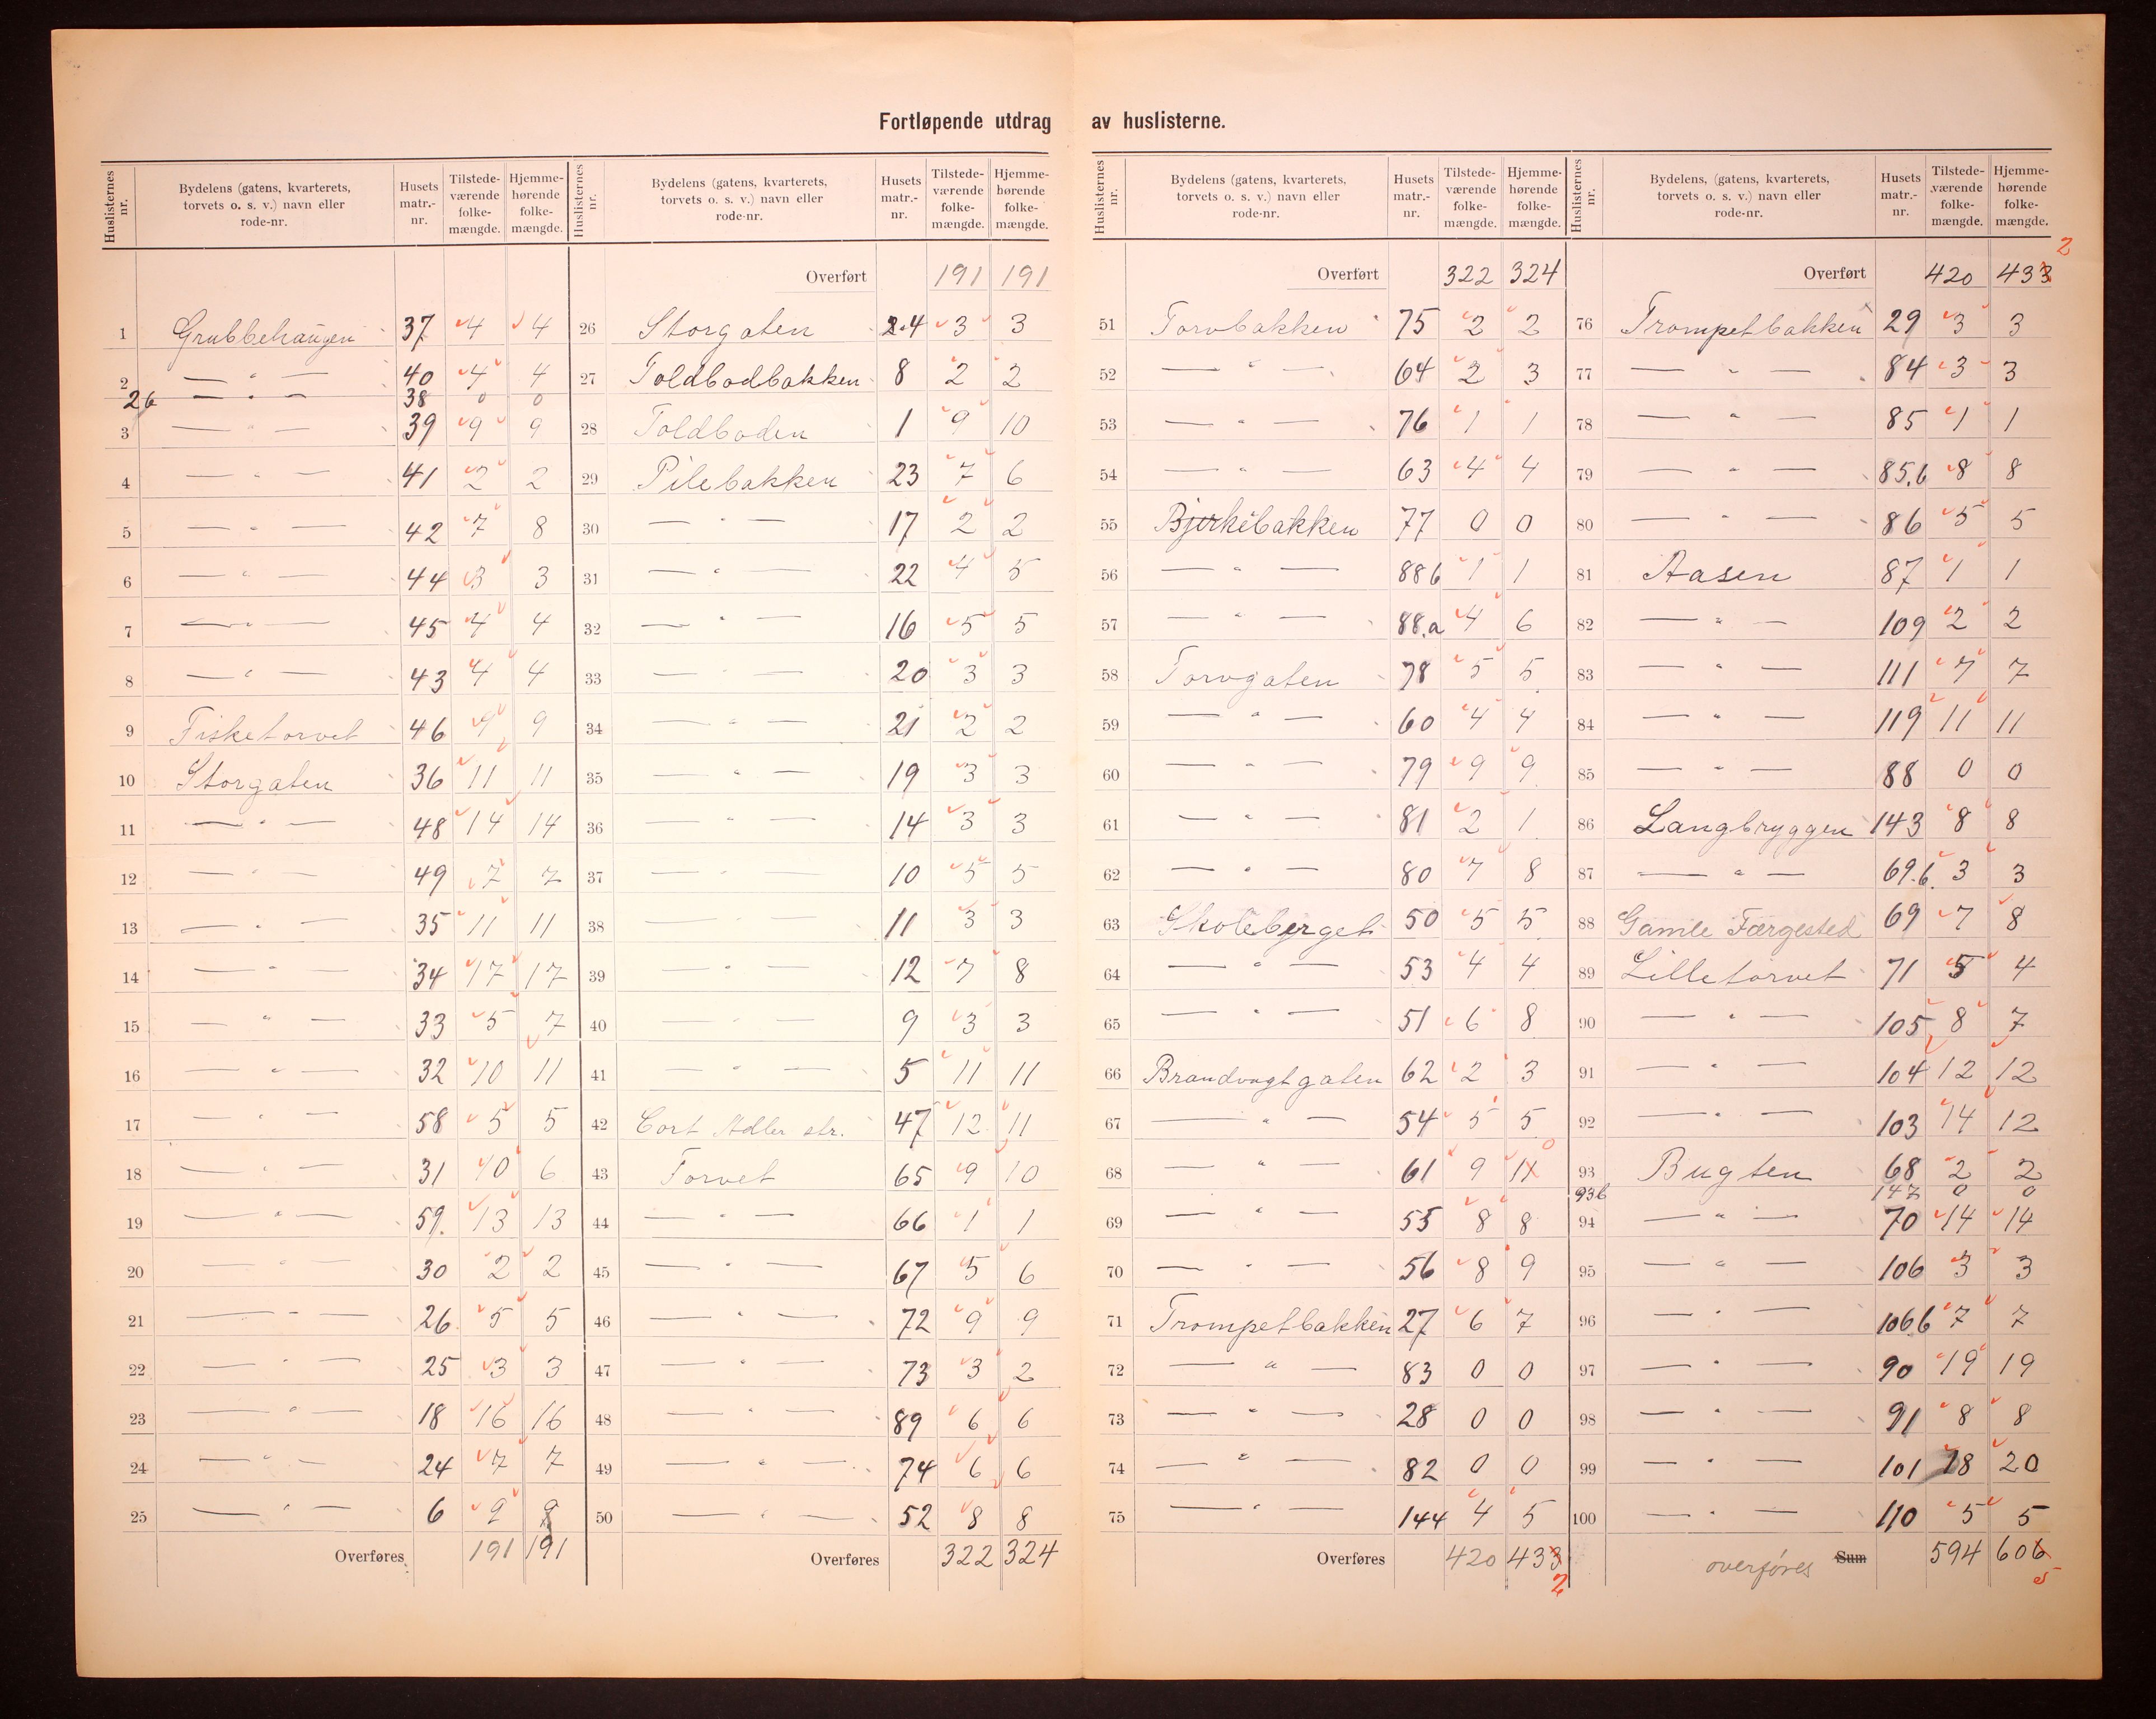 Fortløpende utdrag av huslisterne.
Huslisternes nr. Bydelens (gatens, kvarterets, torvets o. s. v.) navn eller rode-nr. Husets matr.-nr. Tilstedeværende folkemængde. Hjemmehørende folkemængde.
1 Grubbehaugen 37 4 4
2 — " — 40 4 4
2b — " — 38 0 0
3 — " — 39 9 9
4 — " — 41 2 2
5 — " — 42 7 8
6 — " — 44 3 3
7 — " — 45 4 4
8 — " — 43 4 4
9 Fisketorvet 46 9 9
10 Storgaten 36 11 11
11 — " — 48 14 14
12 — " — 49 7 7
13 — " — 35 11 11
14 — " — 34 17 17
15 — " — 33 5 7
16 — " — 32 10 11
17 — " — 58 5 5
18 — " — 31 10 6
19 — " — 59. 13 13
20 — " — 30 2 2
21 — " — 26 5 5
22 — " — 25 3 3
23 — " — 18 16 16
24 — " — 24 7 7
25 — " — 6 9
Overføres 191 191
Huslisternes nr. Bydelens (gatens, kvarterets, torvets o. s. v.) navn eller rode-nr. Husets matr.-nr. Tilstedeværende folkemængde. Hjemmehørende folkemængde.
Overført 191 191
26 Storgaten 2.4 3 3
27 Toldbodbakken 8 2 2
28 Toldboden 1 9 10
29 Pilebakken 23 7 6
30 — " — 17 2 2
31 — " — 22 4 5
32 — " — 16 5 5
33 — " — 20 3 3
34 — " — 21 2 2
35 — " — 19 3 3
36 — " — 14 3 3
37 — " — 10 5 5
38 — " — 11 3 3
39 — " — 12 7 8
40 — " — 9 3 3
41 — " — 5 11 11
42 Cort Adler str. 47 12 11
43 Torvet 65 9 10
44 — " — 66 1 1
45 — " — 67 5 6
46 — " — 72 9 9
47 — " — 73 3 2
48 — " — 89 6 6
49 — " — 74 6 6
50 — " — 52 8 8
Overføres 322 324
Huslisternes nr. Bydelens (gatens, kvarterets, torvets o. s. v.) navn eller rode-nr. Husets matr.-nr. Tilstedeværende folkemængde. Hjemmehørende folkemængde.
Overført 322 324
51 Torvbakken 75 2 2
52 — " — 64 2 3
53 — " — 76 1 1
54 — " — 63 4 4
55 Bjerkebakken 77 0 0
56 — " — 88b 1 1
57 — " — 88.a 4 6
58 Torvgaten 78 5 5
59 — " — 60 4 4
60 — " — 79 9 9
61 — " — 81 2 1
62 — " — 80 7 8
63 Skoleberget 50 5 5
64 — " — 53 4 4
65 — " — 51 6 8
66 Brandvagtgaten 62 2 3
67 — " — 54 5 5
68 — " — 61 9 11 0
69 — " — 55 8 8
70 — " — 56 8 9
71 Trompetbakken 27 6 7
72 — " — 83 0 0
73 — " — 28 0 0
74 — " — 82 0 0
75 — " — 144 4 5
Overføres 420 433 2
Huslisternes nr. Bydelens, (gatens, kvarterets, torvets o. s. v.) navn eller rode-nr. Husets matr.-nr. Tilstedeværende folkemængde. Hjemmehørende folkemængde.
Overført 420 433 2
76 Trompetbakken 29 3 3
77 — " — 84 3 3
78 — " — 85 1 1
79 — " — 85.b 8 8
80 — " — 86 5 5
81 Aasen 87 1 1
82 — " — 109 2 2
83 — " — 111 7 7
84 — " — 119 11 11
85 — " — 88 0 0
86 Langbryggen 143 8 8
87 — " — 69.b. 3 3
88 Gamle Færgested 69 7 8
89 Lilletorvet 71 5 4
90 — " — 105 8 7
91 — " — 104 12 12
92 — " — 103 14 12
93 Bugten 68 2 2
93b 147 0 0
94 — " — 70 14 14
95 — " — 106 3 3
96 — " — 106b 7 7
97 — " — 90 19 19
98 — " — 91 8 8
99 — " — 101 18 20
100 — " — 110 5 5
overføres Sum 594 606 5